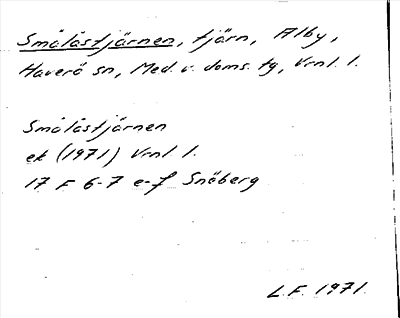 Smålåstjärnen, tjärn, Alby,
Haverö sn, Med. v. doms. tg, Vrnl. l.
Smålåstjärnen
ek (1971) Vrnl. l.
17 F 6-7 e-f Snöberg
L.F. 1971.